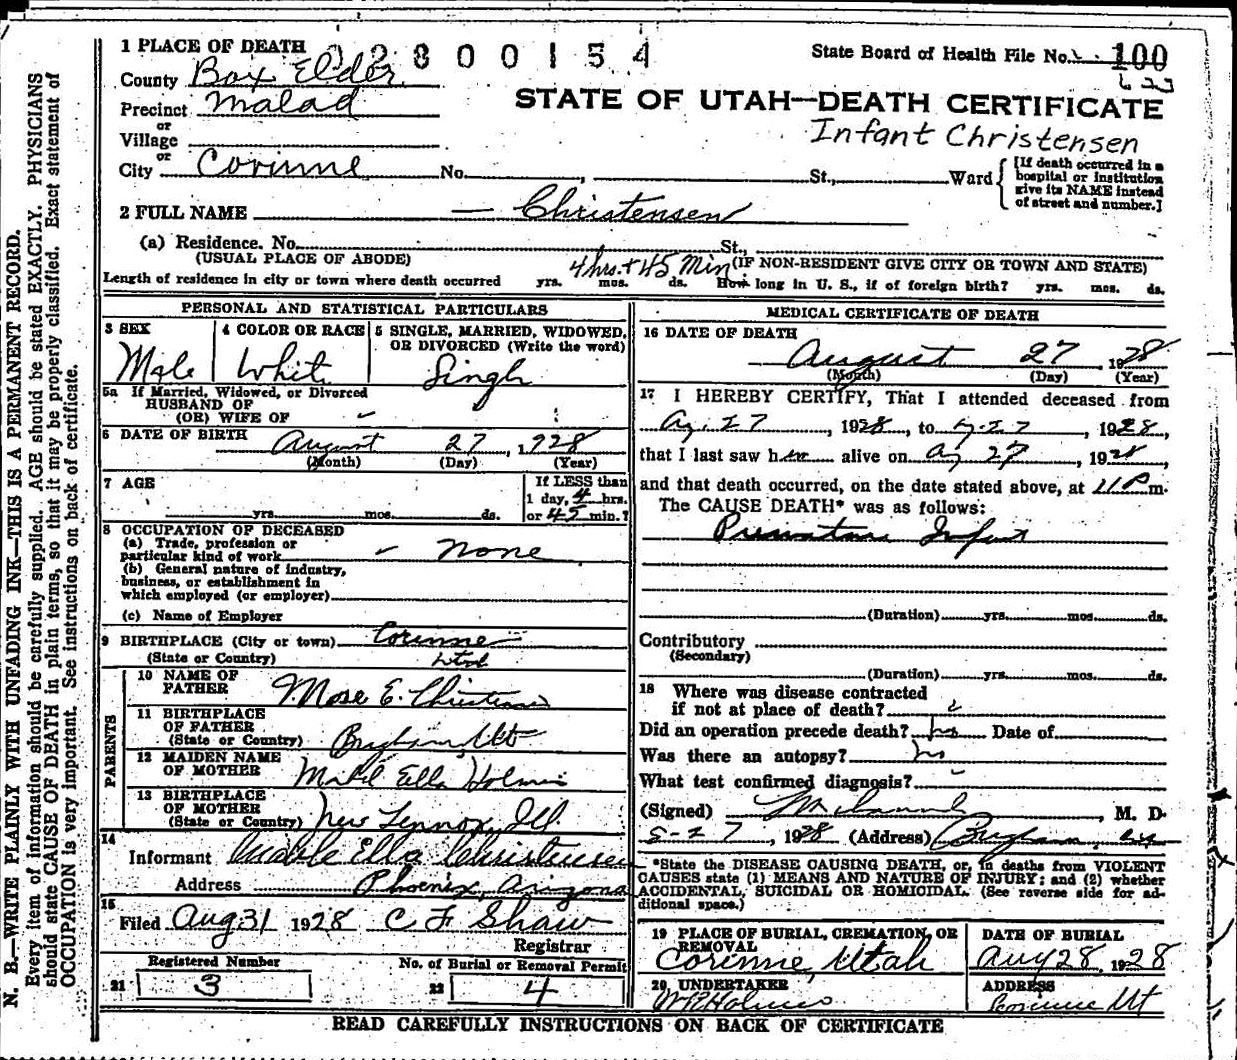 1 PLACE OF DEATH 2800154 State Board of Health File No. 100
County Box Elder 622
Precinct Malad STATE OF UTAH—DEATH CERTIFICATE
or Infant Christensen
Village
or
City Corinne No. , St., Ward {[If death occurred in a hospital or institution give its NAME instead of street and number.]
2 FULL NAME — Christensen
(a) Residence. No. St.,
(USUAL PLACE OF ABODE) 4 hrs. + 45 Min (IF NON-RESIDENT GIVE CITY OR TOWN AND STATE)
Length of residence in city or town where death occurred yrs. mos. ds. How long in U. S., if of foreign birth? yrs. mos. ds.
PERSONAL AND STATISTICAL PARTICULARS
3 SEX 4 COLOR OR RACE 5 SINGLE, MARRIED, WIDOWED, OR DIVORCED (Write the word)
Male White Single
5a If Married, Widowed, or Divorced
HUSBAND OF
(OR) WIFE OF –
6 DATE OF BIRTH August 27, 1928
(Month) (Day) (Year)
7 AGE If LESS than
1 day, 4 hrs.
yrs. mos. ds. or 45 min.?
8 OCCUPATION OF DECEASED
(a) Trade, profession or
particular kind of work – none
(b) General nature of industry,
business, or establishment in
which employed (or employer)
(c) Name of Employer
9 BIRTHPLACE (City or town) Corinne
(State or Country) Utah
PARENTS
10 NAME OF
FATHER Mose E. Christensen
11 BIRTHPLACE
OF FATHER
(State or Country) Brigham, Ut
12 MAIDEN NAME
OF MOTHER Ella Holmes
13 BIRTHPLACE
OF MOTHER
(State or Country) New Lennox, Ill
14
Informant Ella Christensen
Address Phoenix, Arizona
15
Filed Aug 31 1928 C F Shaw
Registrar
Registered Number No. of Burial or Removal Permit
21 3 22 4
MEDICAL CERTIFICATE OF DEATH
16 DATE OF DEATH
August 27, 1928
(Month) (Day) (Year)
17 I HEREBY CERTIFY, That I attended deceased from
Ag. 27, 1928, to 27, 1928,
that I last saw h alive on Ag 27, 1928,
and that death occurred, on the date stated above, at 11 P m.
The CAUSE DEATH* was as follows:
Premature Infant
(Duration) yrs. mos. ds.
Contributory
(Secondary)
(Duration) yrs. mos. ds.
18 Where was disease contracted
if not at place of death?
Did an operation precede death? no Date of
Was there an autopsy? no
What test confirmed diagnosis?
(Signed) , M. D.
8-27, 1928 (Address) Brigham,
*State the DISEASE CAUSING DEATH, or, in deaths from VIOLENT
CAUSES state (1) MEANS AND NATURE OF INJURY; and (2) whether
ACCIDENTAL, SUICIDAL OR HOMICIDAL. (See reverse side for ad-
ditional space.)
19 PLACE OF BURIAL, CREMATION, OR REMOVAL DATE OF BURIAL
Corinne, Utah Aug 28, 1928
20 UNDERTAKER ADDRESS
Holmes Corinne Ut
READ CAREFULLY INSTRUCTIONS ON BACK OF CERTIFICATE
N. B.—WRITE PLAINLY WITH UNFADING INK—THIS IS A PERMANENT RECORD.
Every item of information should be carefully supplied. AGE should be stated EXACTLY. PHYSICIANS
should state CAUSE OF DEATH in plain terms, so that it may be properly classified. Exact statement of
OCCUPATION is very important. See instructions on back of certificate.